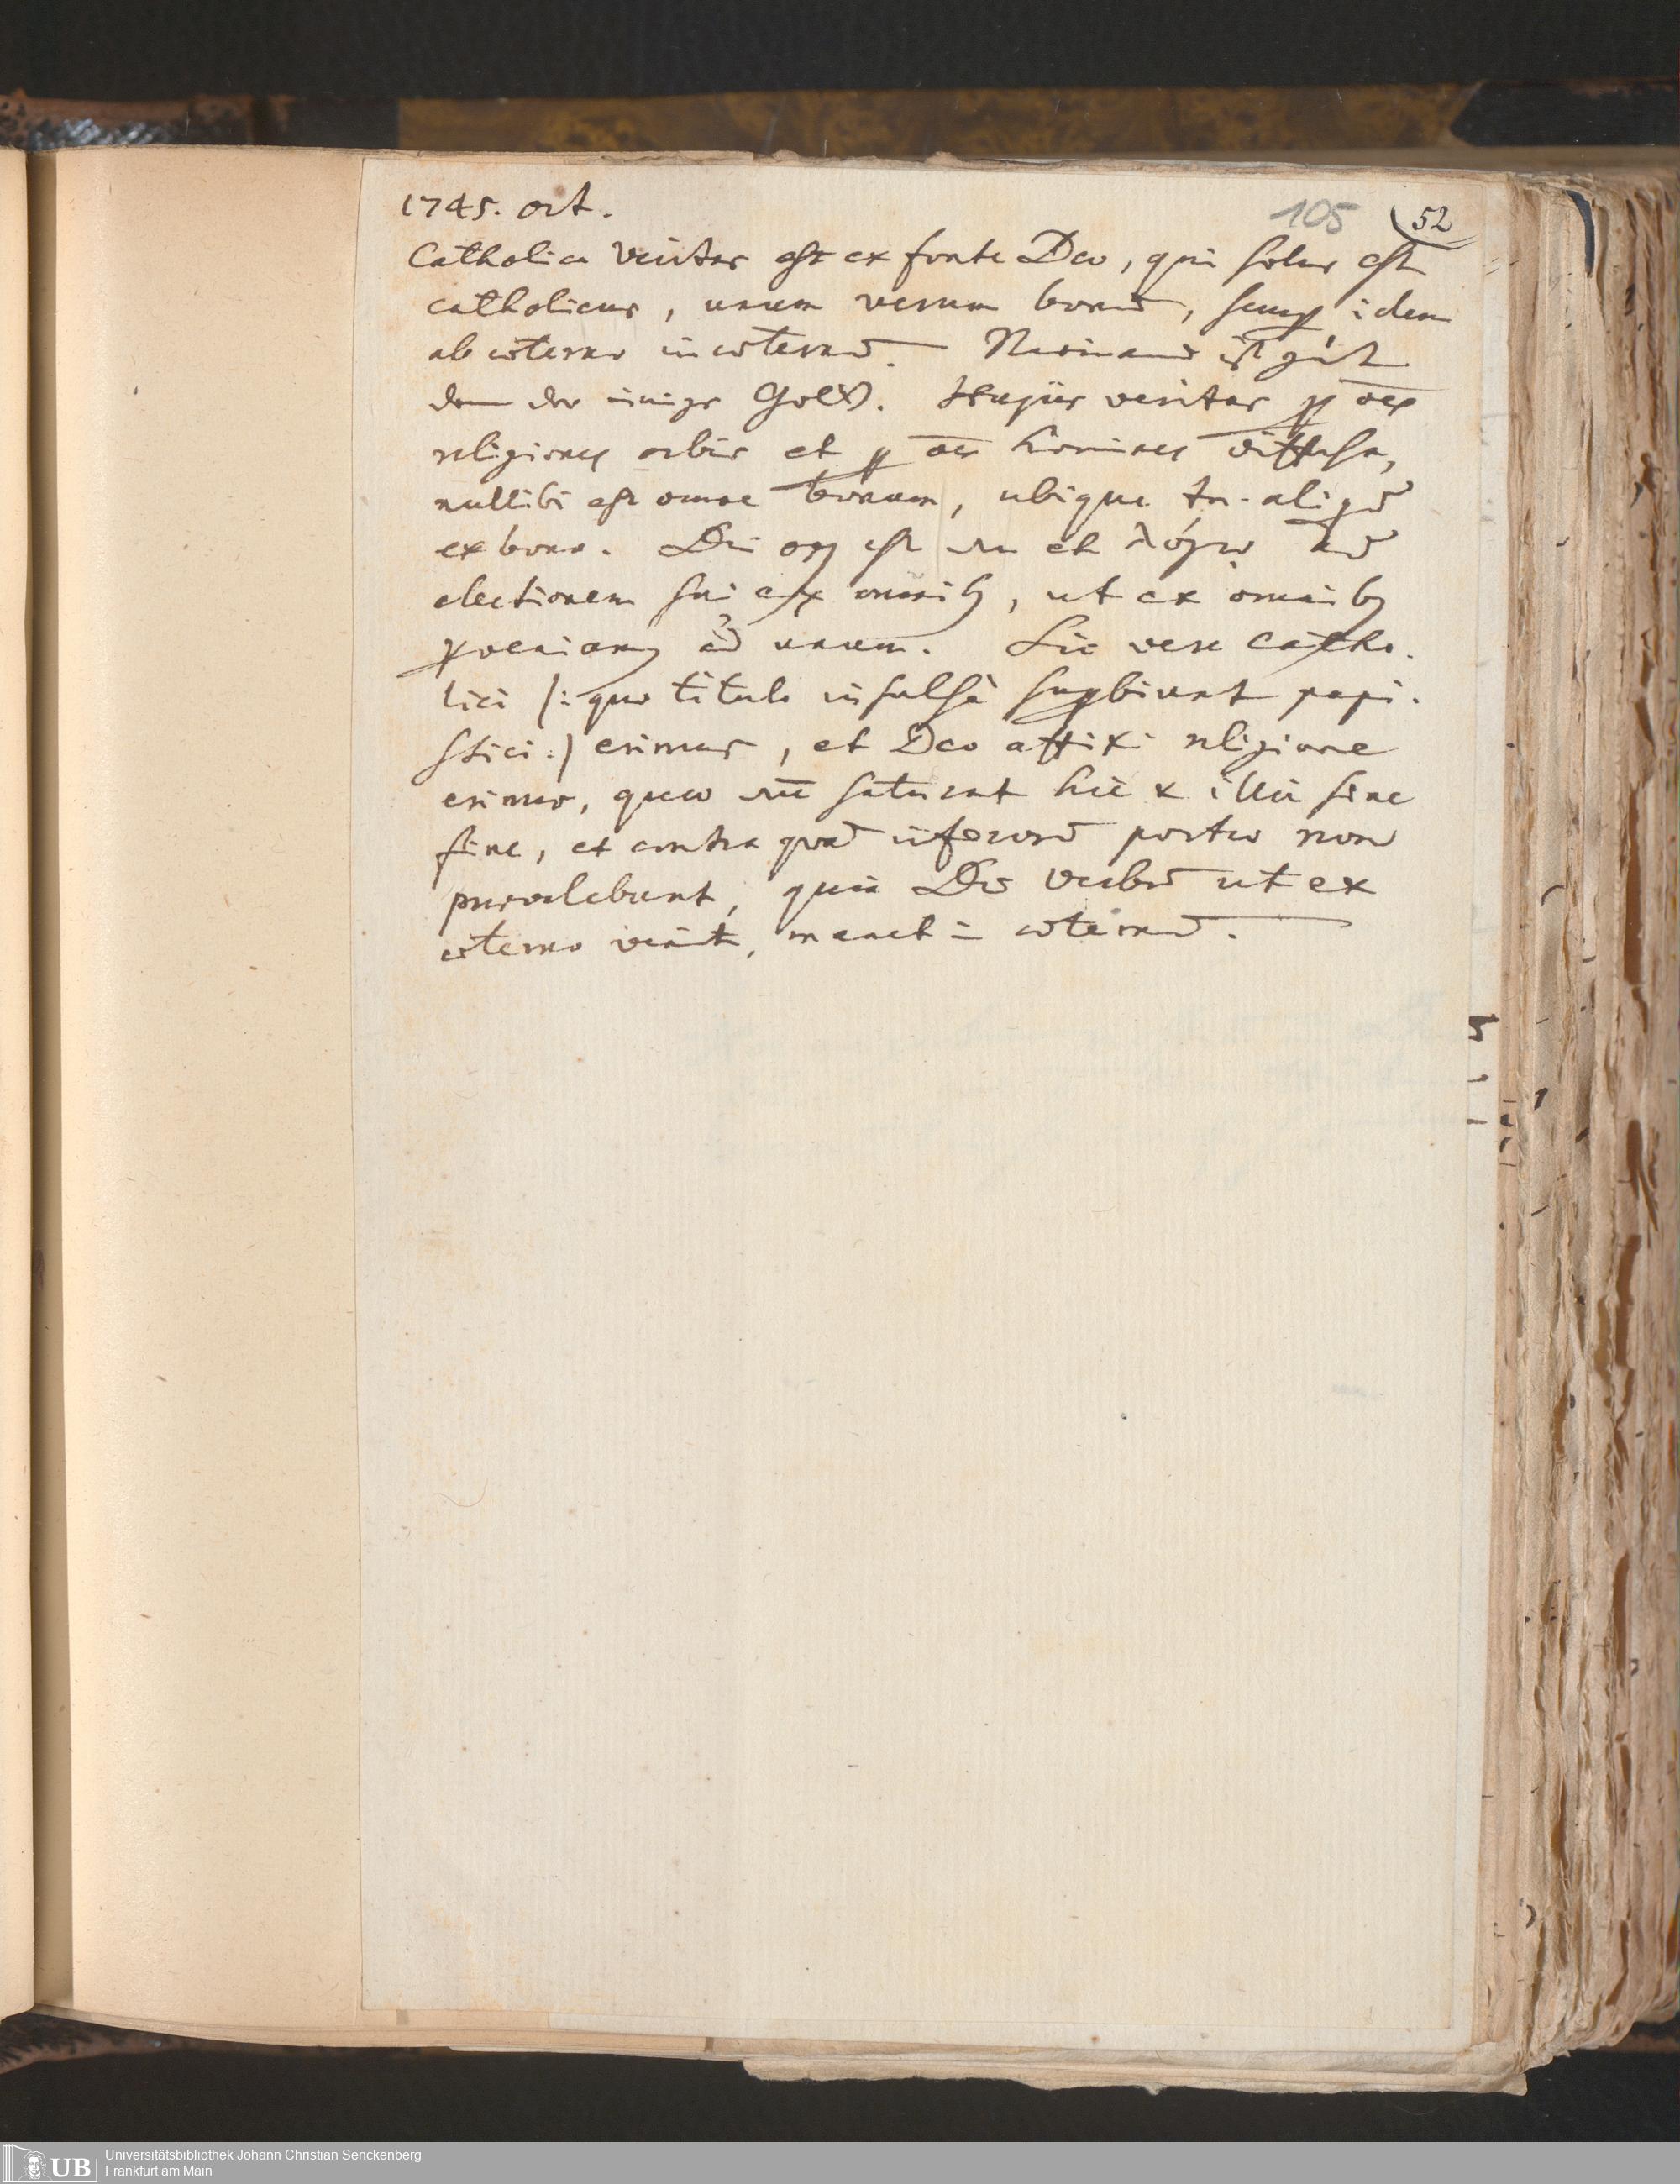 1745. oct.
105 52
Catholica veritas est ex fonte Deo, qui solus est
catholicus, unum verum bonū, semp idem
ab æterno in æternū. Niemand ist gút
denn der einige Gott. Hujus veritas p oēs
religiones orbis et p oēs homines diffusa,
nullibi est omne bonum, ubique tn. aliqd
ex bono. Dei op est et λόγω ad
electionem sui ex omnib, ut ex omnib
pveniam ad unum. Sic vere catho
lici /: quo titulo insulse supbiunt papi-
stici :/ erimus, et Deo affixi religione
erimus, quæ saturat hic & illic sine
fine, et contra quā inferorū portæ non
prævalebunt, quia Dei verbū ut ex
æterno venit, manet in æternū.
Universitätsbibliothek Johann Christian Senckenberg
Frankfurt am Main
UB